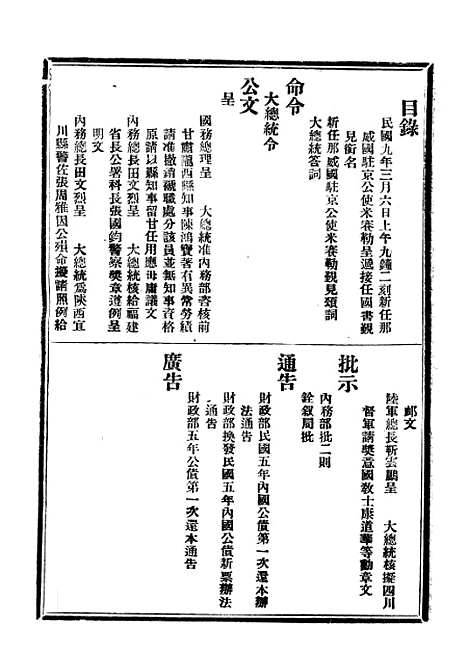 目錄
民國九年三月六日上午九鐘二刻新任那
威國駐京公使米賽勒呈遞接任國書覲
見銜名
新任那威國駐京公使米賽勒覲見頌詞
大總統答詞
命令
大總統令
公文
呈
國務總理呈　大總統准內務部咨核前
甘肅隴西縣知事陳鴻寶著有異常勞績
請准撤銷褫職處分該員並無知事資格
原請以縣知事留甘任用應毋庸議文
內務總長田文烈呈　大總統核給福建
省長公署科長張國鈞警察獎章遵例呈
明文
內務總長田文烈呈　大總統為陝西宜
川縣警佐張周雅因公殞命擬請照例給
卹文
陸軍總長靳雲鵬呈　大總統核擬四川
督軍請獎意國教士康道華等勳章文
批示
內務部批二則
銓叙局批
通告
財政部民國五年內國公債第一次還本辦
法通告
財政部換發民國五年內國公債新票辦法
通告
廣告
財政部五年公債第一次還本通告